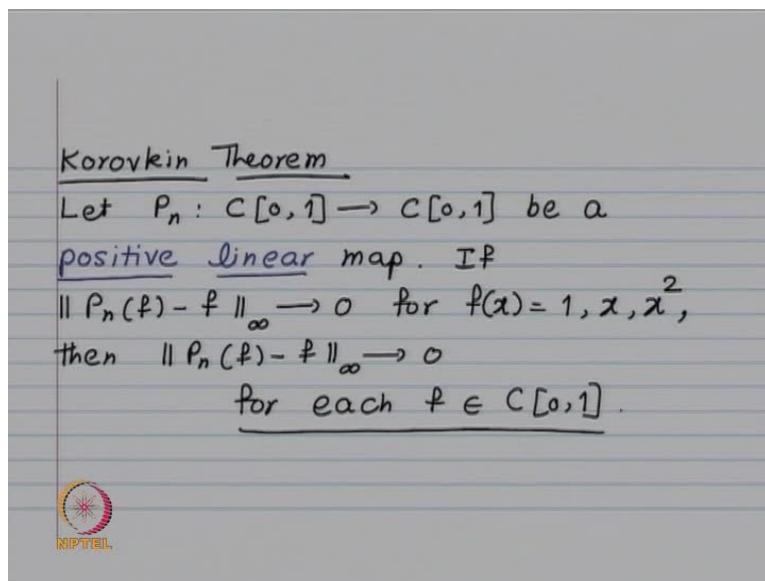 Korovkin Theorem
Let Pn : C[0,1] → C[0,1] be a
positive linear map. If
|| Pn(f) - f ||∞ → 0 for f(x) = 1, x, x²,
then || Pn(f) - f ||∞ → 0
for each f ∈ C[0,1].
NPTEL